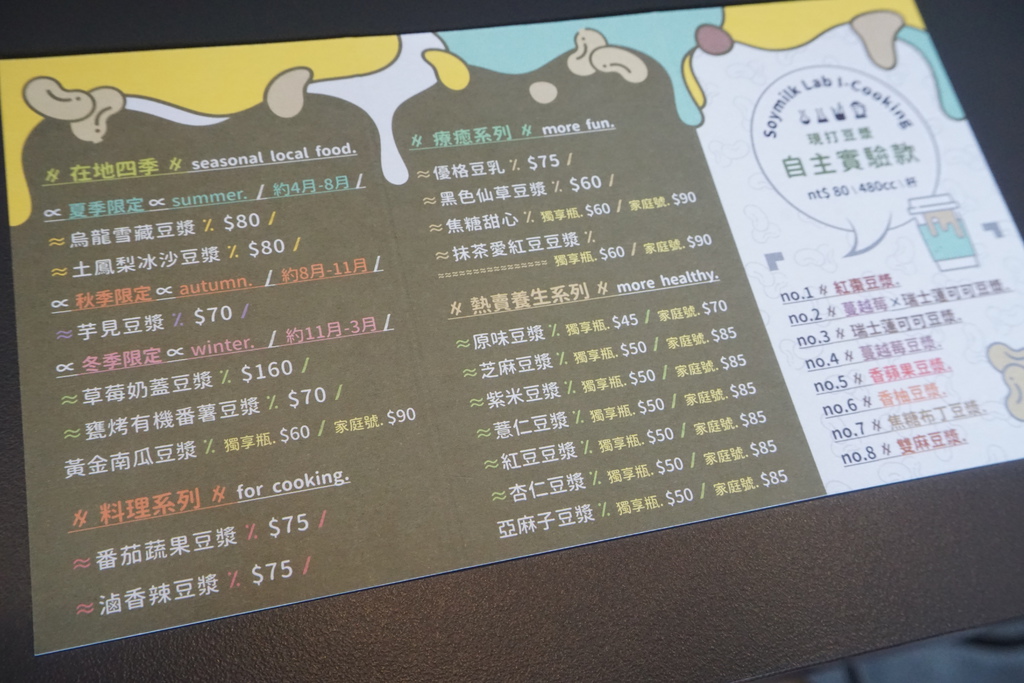 在地四季 seasonal local food.
夏季限定 summer. / 約4月-8月 /
烏龍雪藏豆漿 $80 /
土鳳梨冰沙豆漿 $80 /
秋季限定 autumn. / 約8月-11月 /
芋見豆漿 $70 /
冬季限定 winter. / 約11月-3月 /
草莓奶蓋豆漿 $160 /
甕烤有機番薯豆漿 $70 /
黃金南瓜豆漿 獨享瓶. $60 / 家庭號. $90
料理系列 for cooking.
番茄蔬果豆漿 $75 /
滷香辣豆漿 $75 /
療癒系列 more fun.
優格豆乳 $75 /
黑色仙草豆漿 $60 /
焦糖甜心 獨享瓶. $60 / 家庭號. $90
抹茶愛紅豆豆漿
獨享瓶. $60 / 家庭號. $90
熱賣養生系列 more healthy.
原味豆漿 獨享瓶. $45 / 家庭號. $70
芝麻豆漿 獨享瓶. $50 / 家庭號. $85
紫米豆漿 獨享瓶. $50 / 家庭號. $85
薏仁豆漿 獨享瓶. $50 / 家庭號. $85
紅豆豆漿 獨享瓶. $50 / 家庭號. $85
杏仁豆漿 獨享瓶. $50 / 家庭號. $85
亞麻子豆漿 獨享瓶. $50 / 家庭號. $85
Soymilk Lab I-Cooking
現打豆漿
自主實驗款
nt$ 80 \ 480cc \ 杯
no.1 紅棗豆漿.
no.2 蔓越莓×瑞士蓮可可豆漿.
no.3 瑞士蓮可可豆漿.
no.4 蔓越莓豆漿.
no.5 香蘋果豆漿.
no.6 香柚豆漿.
no.7 焦糖布丁豆漿.
no.8 雙麻豆漿.